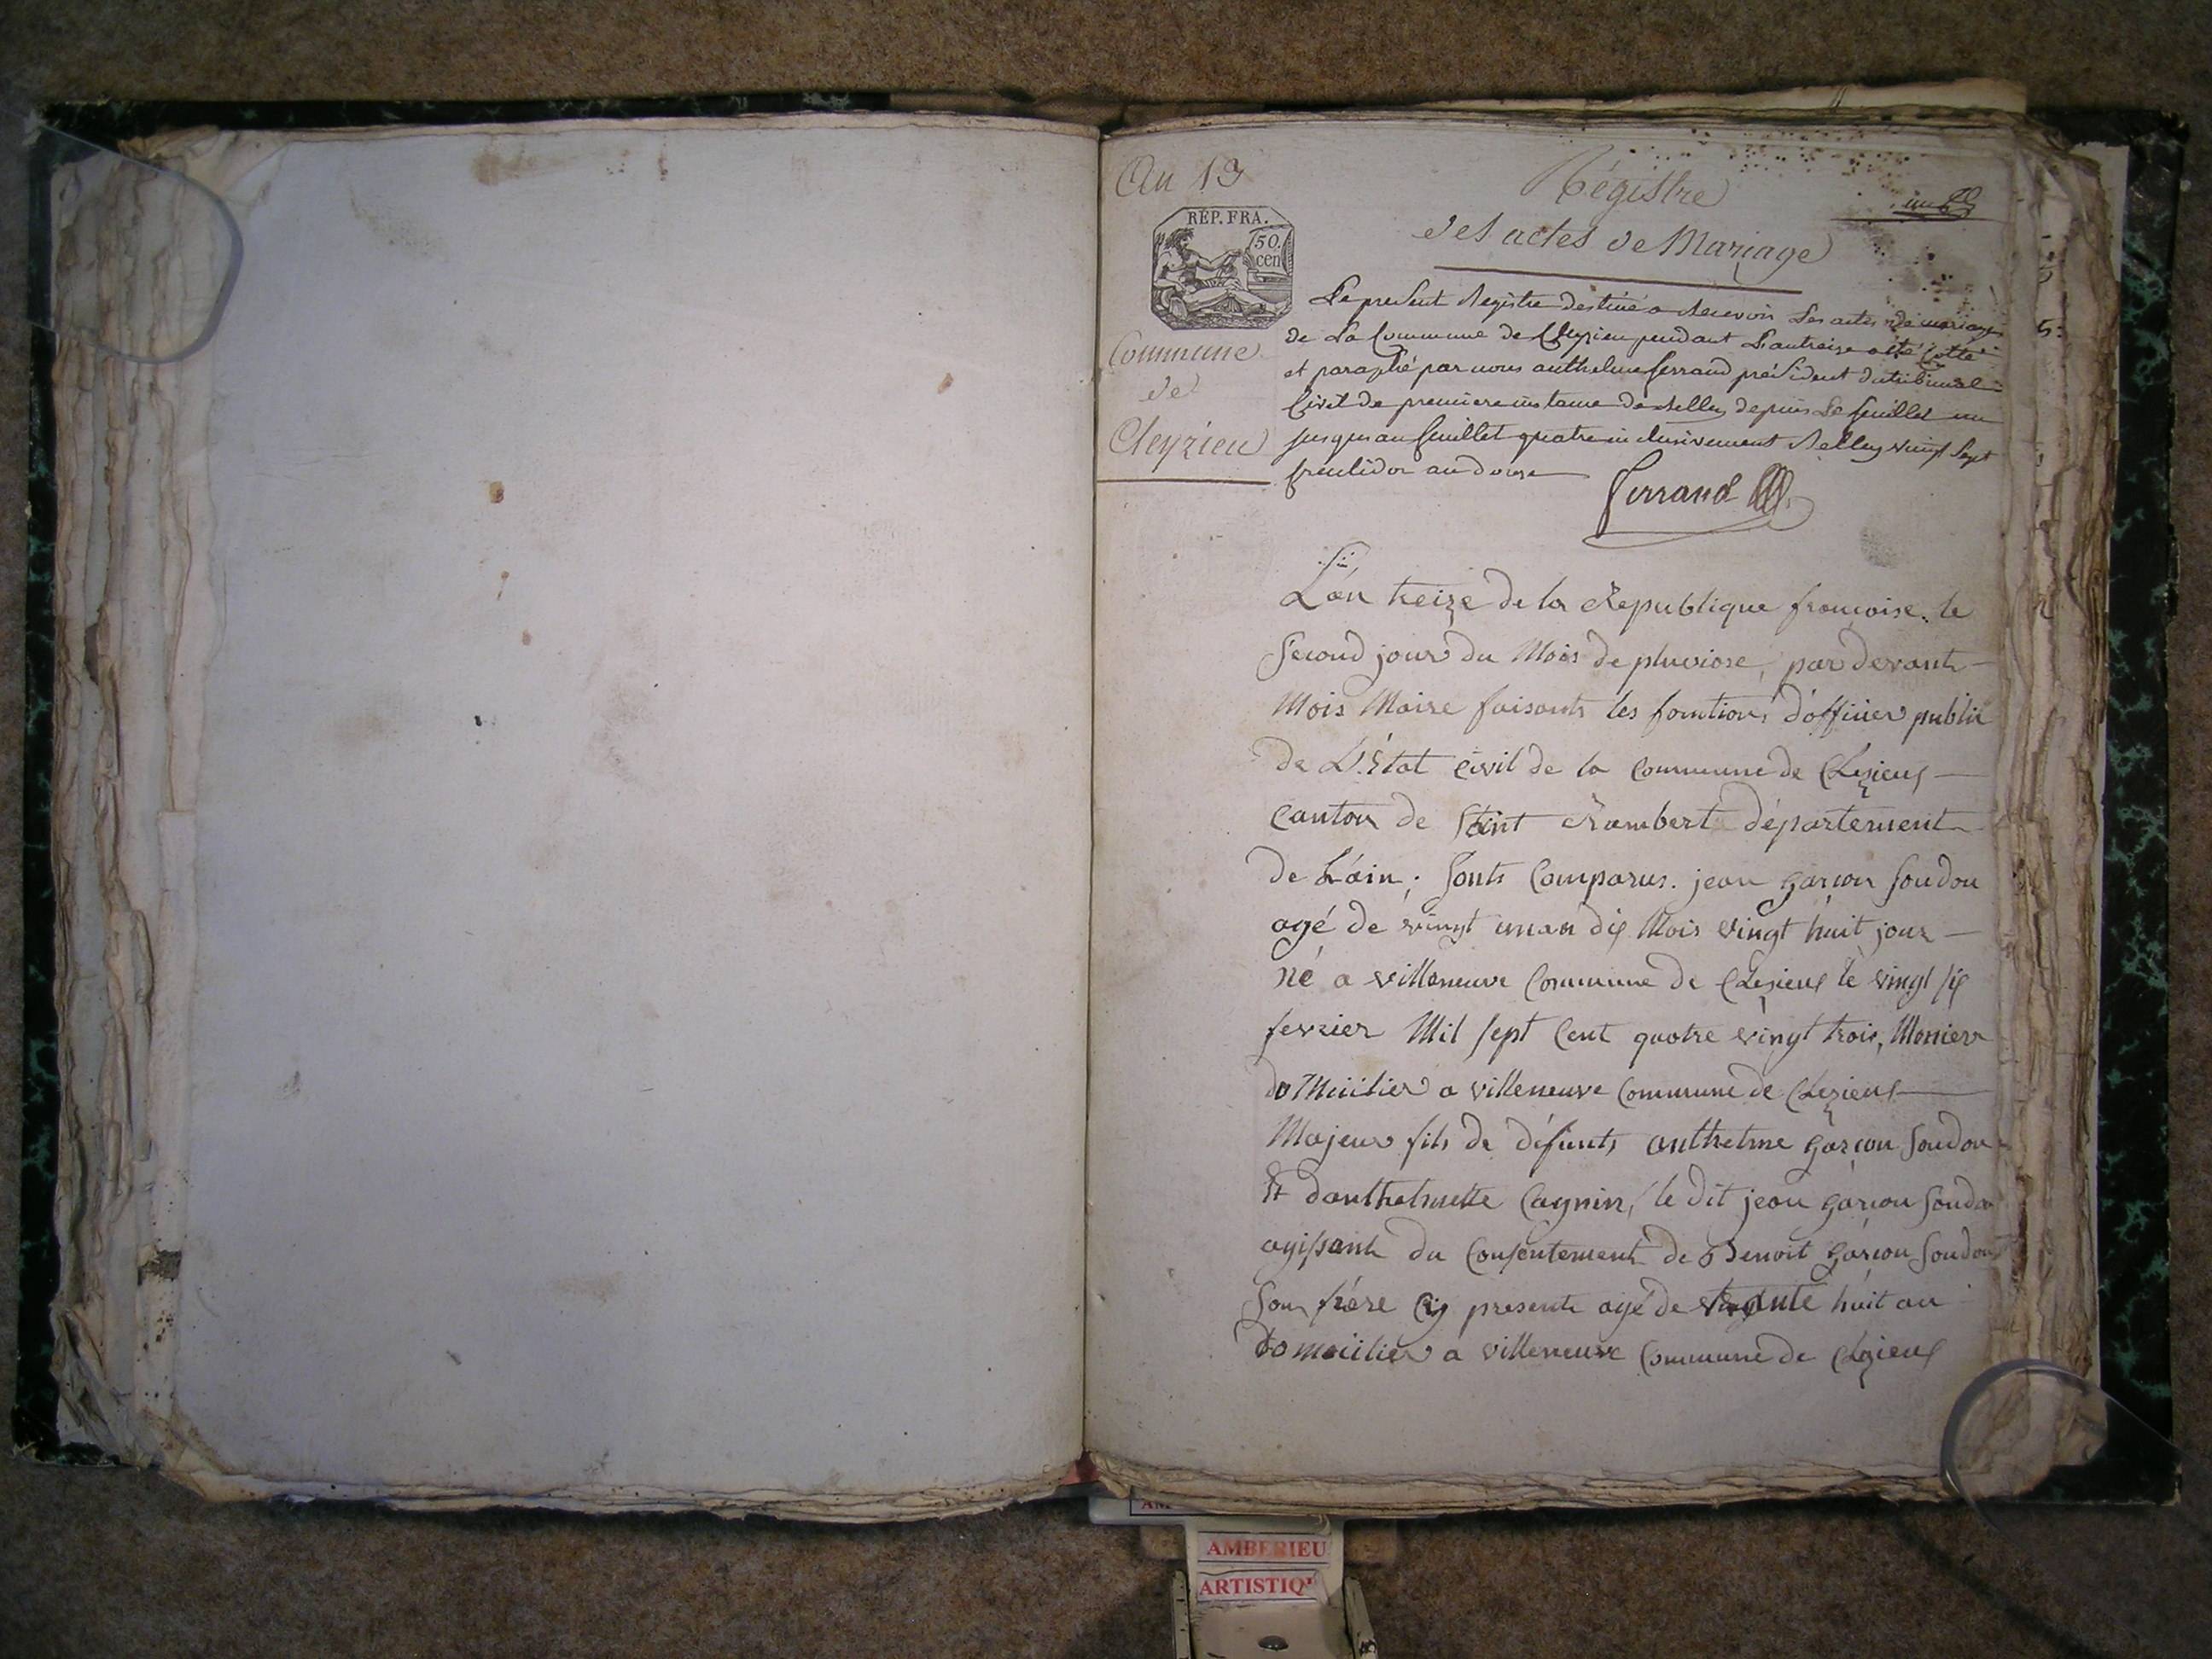 An 13
REP. FRA.
50.
cen
Commune
de
Cleyzieu
Régistre
des actes de Mariage
un
Le present Registre destiné a Recevoir Les actes de mariages
de La Commune de Cleyzieu pendant L'an treize a été Cotté
et paraphé par nous anthelme ferrand président du tribunal
Civil de premiere instance de Belley depuis Le feuillet un
jusques au feuillet quatre inclusivement Belley vingt Sept
fructidor an douze
ferrand
L'an treize de la Republique francoise. le
second jour du Mois de pluviose, par devant
Mois Maire faisants les fonctions d'officier public
de L'Etat civil de la Commune de Clezieux
Canton de Saint Rambert département
de L'ain; sonts Comparus. jean garcon soudon
agé de vingt un an dix Mois vingt huit jour
né a villeneuve Commune de Clezieux le vingt six
fevrier Mil sept Cent quatre vingt trois,
domicilier a villeneuve Commune de Clezieux
Majeur fils de défunts anthelme garcon soudon
Et danthelmette Cagnin, le dit jean garcon soudon
agissant du Consentement de Benoit garcon soudon
son frère Cy present agé de trante huit an
domicilier a villeneuve Commune de Clezieux
AMBERIEU
ARTISTIQ